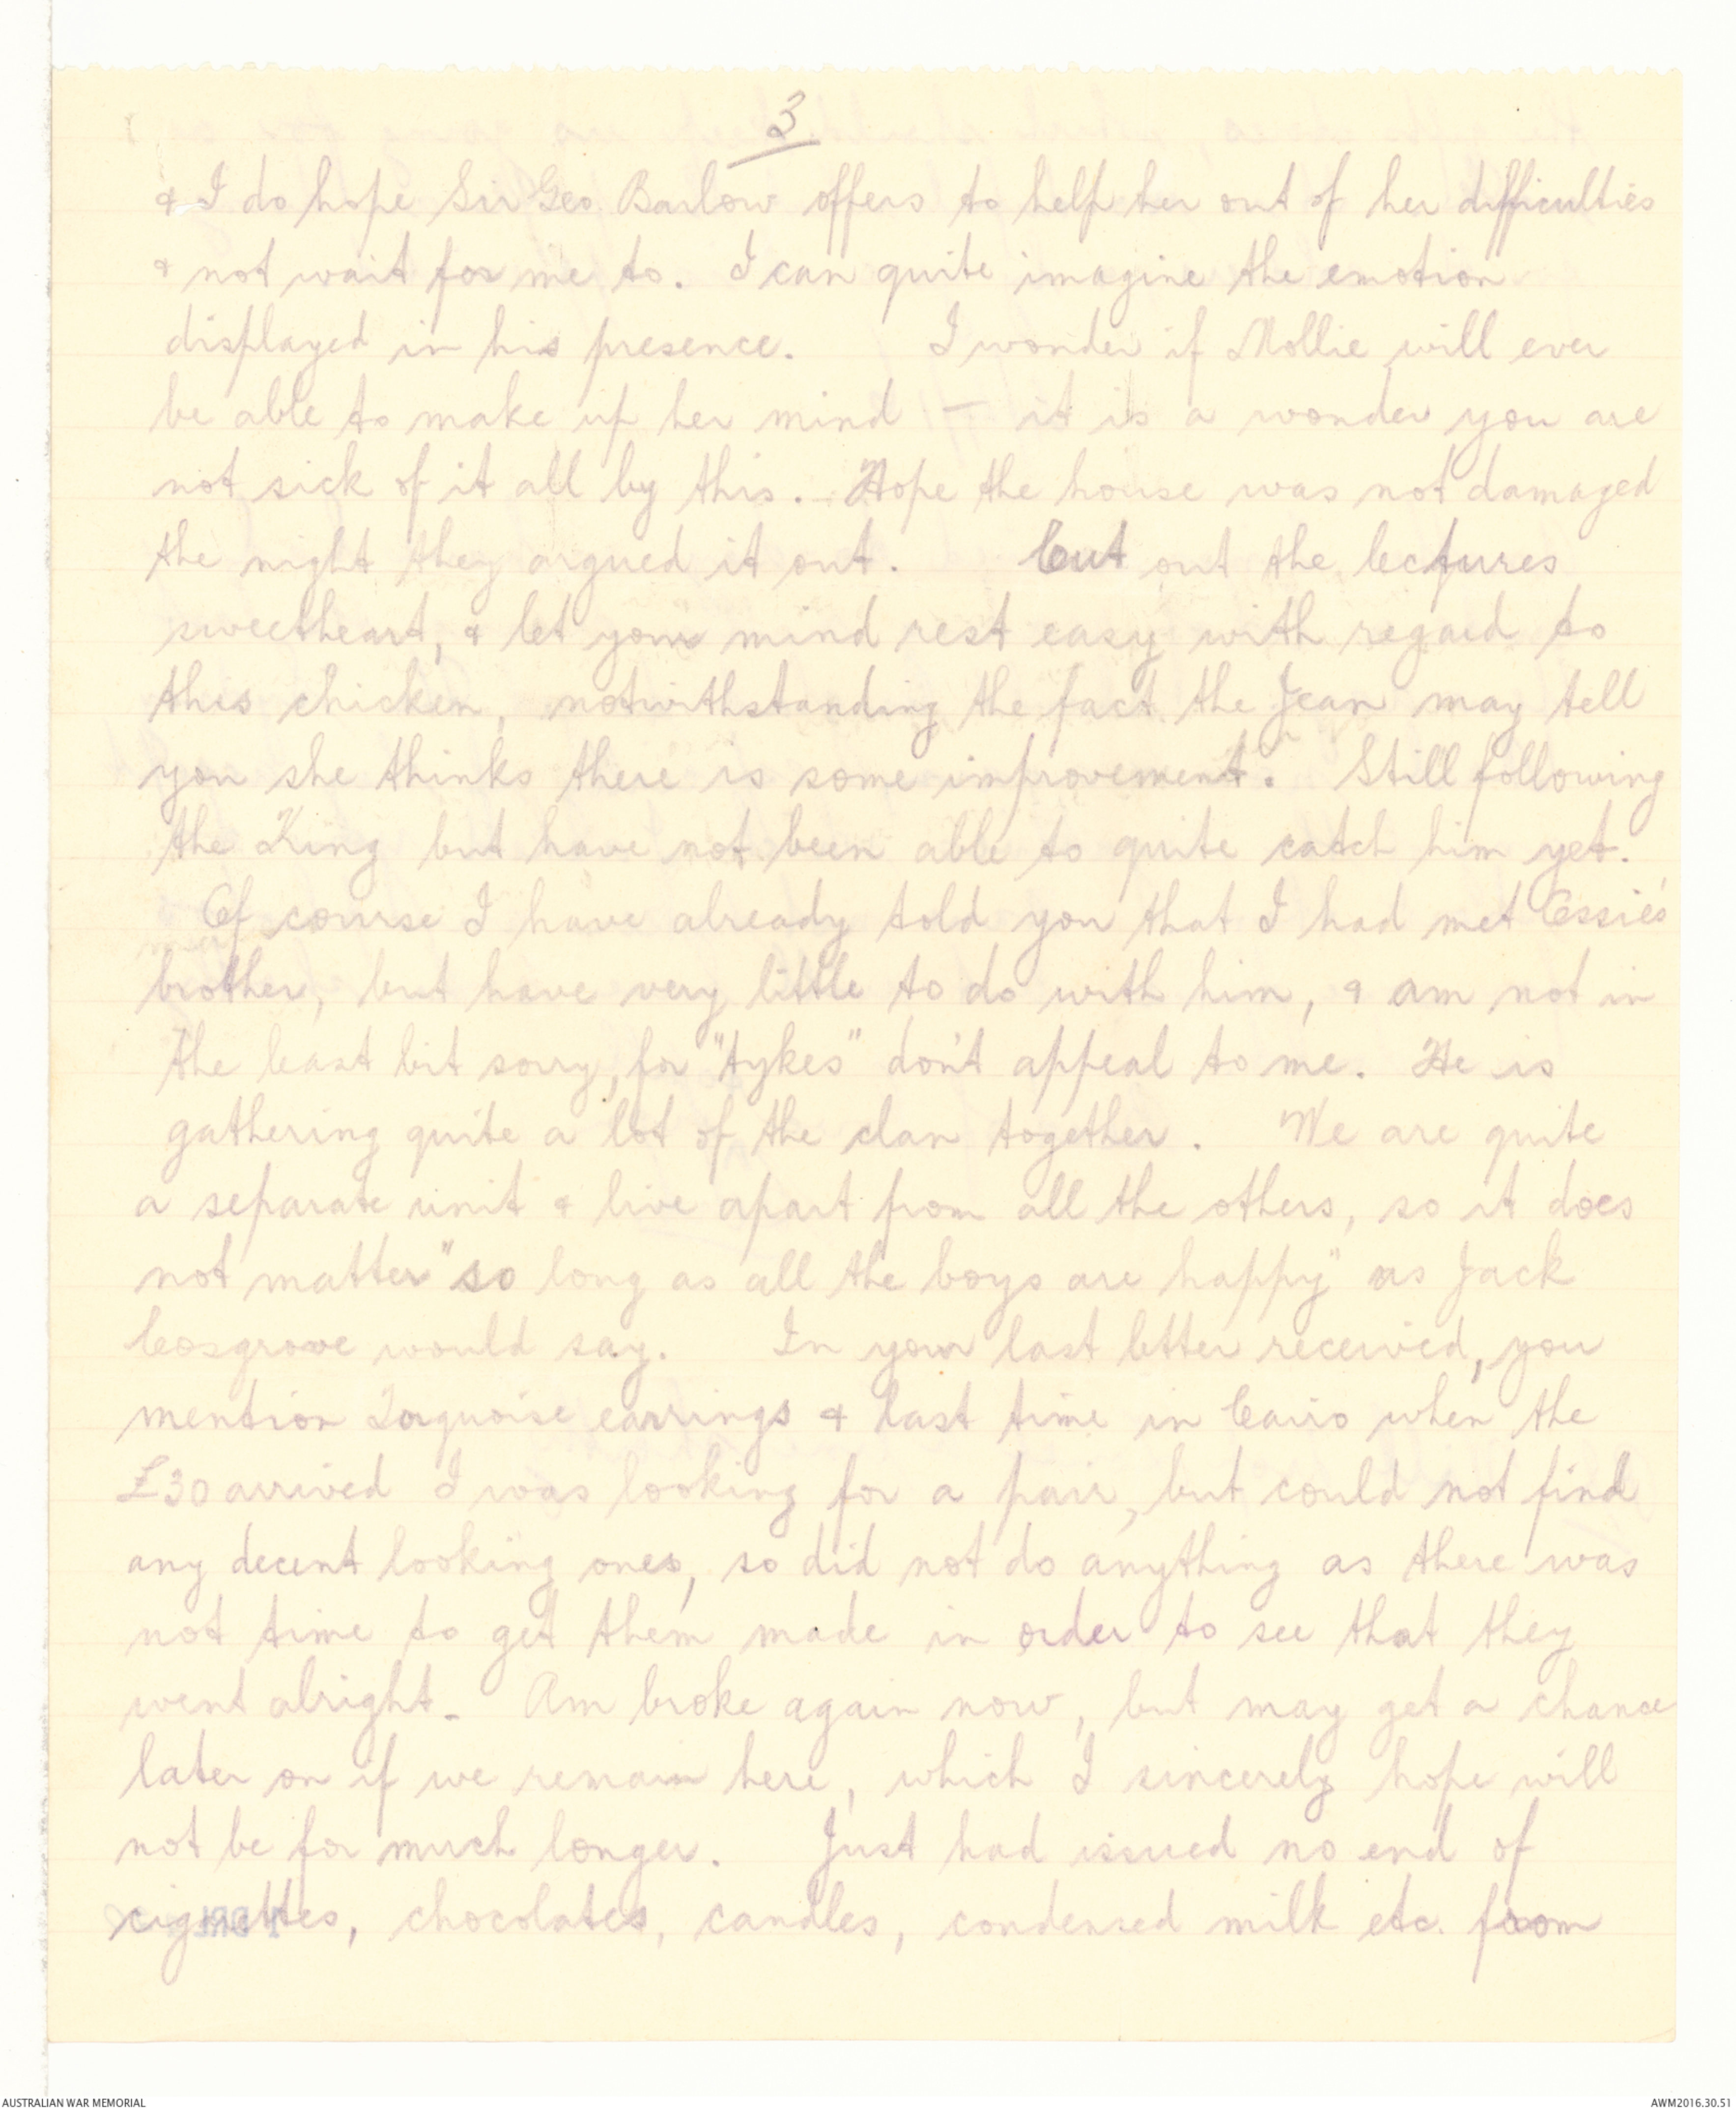 3
& I do hope Sir Geo Barlow offers to help her out of her difficulties
& not wait for me to. I can quite imagine the emotion
displayed in his presence. I wonder if Mollie will ever
be able to make up her mind - it is a wonder you are
not sick of it all by this. Hope the house was not damaged
the night they argued it out. Cut out the lectures
sweetheart, & let your mind rest easy with regard to
this chicken, notwithstanding the fact the Jean may tell
you she thinks there is some improvement. Still following
the King but have not been able to quite catch him yet.
Of course I have already told you that I had met Essie's
brother, but have very little to do with him, & am not in
the least bit sorry, for "tykes" don't appeal to me. He is
gathering quite a lot of the clan together. We are quite
a separate unit & live apart from all the others, so it does
not matter "so long as all the boys are happy" as Jack
Cosgrove would say. In your last letter received, you
mention Torquoise earrings & last time in Cairo when the
£30 arrived I was looking for a pair, but could not find
any decent looking ones, so did not do anything as there was
not time to get them made in order to see that they
went alright. Am broke again now, but may get a chance
later on if we remain here, which I sincerely hope will
not be for much longer. Just had issued no end of
cigarettes, chocolates, candles, condensed milk etc. from
AUSTRALIAN WAR MEMORIAL
AWM2016.30.51